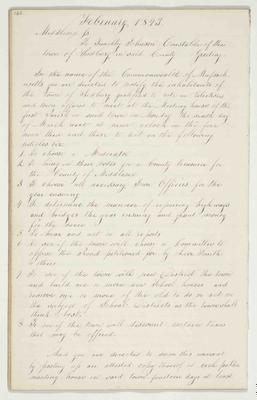 February, 1823.
Middlesex Ss.
To Timothy Johnson Constable of the
town of in said County Greeting.
In the name of the Commonwealth of Massach
usetts you are directed to notify the inhabitants of
the Town of qualified to vote in Elections
and town affairs to meet at the Meeting house of the
first Parish in said town on Monday the day
of March next at nine o'clock in the fore
noon then and there to act on the following
articles viz.
1 To choose a Moderator
2 To bring in their votes for a County Treasurer for
the County of Middlesex
3 To choose all necessary Town Officers for the
year ensuing
4 To determine the manner of repairing highways
and bridges the year ensuing and grant money
for the same
5 To hear and act on all reports
6 To see if the town will choose a Committee to
oppose the Road petitioned for by Smith
& others
7 To see if the town will District the town
and build one or more new School houses and
remove one or more of the old to do or act on
the subject of School Districts as the town shall
think best.
8 To see if the town will discount certain taxes
that may be offered.
And you are directed to serve this warrant
by posting up an attested copy thereof at each public
meeting house in said town fourteen days at least